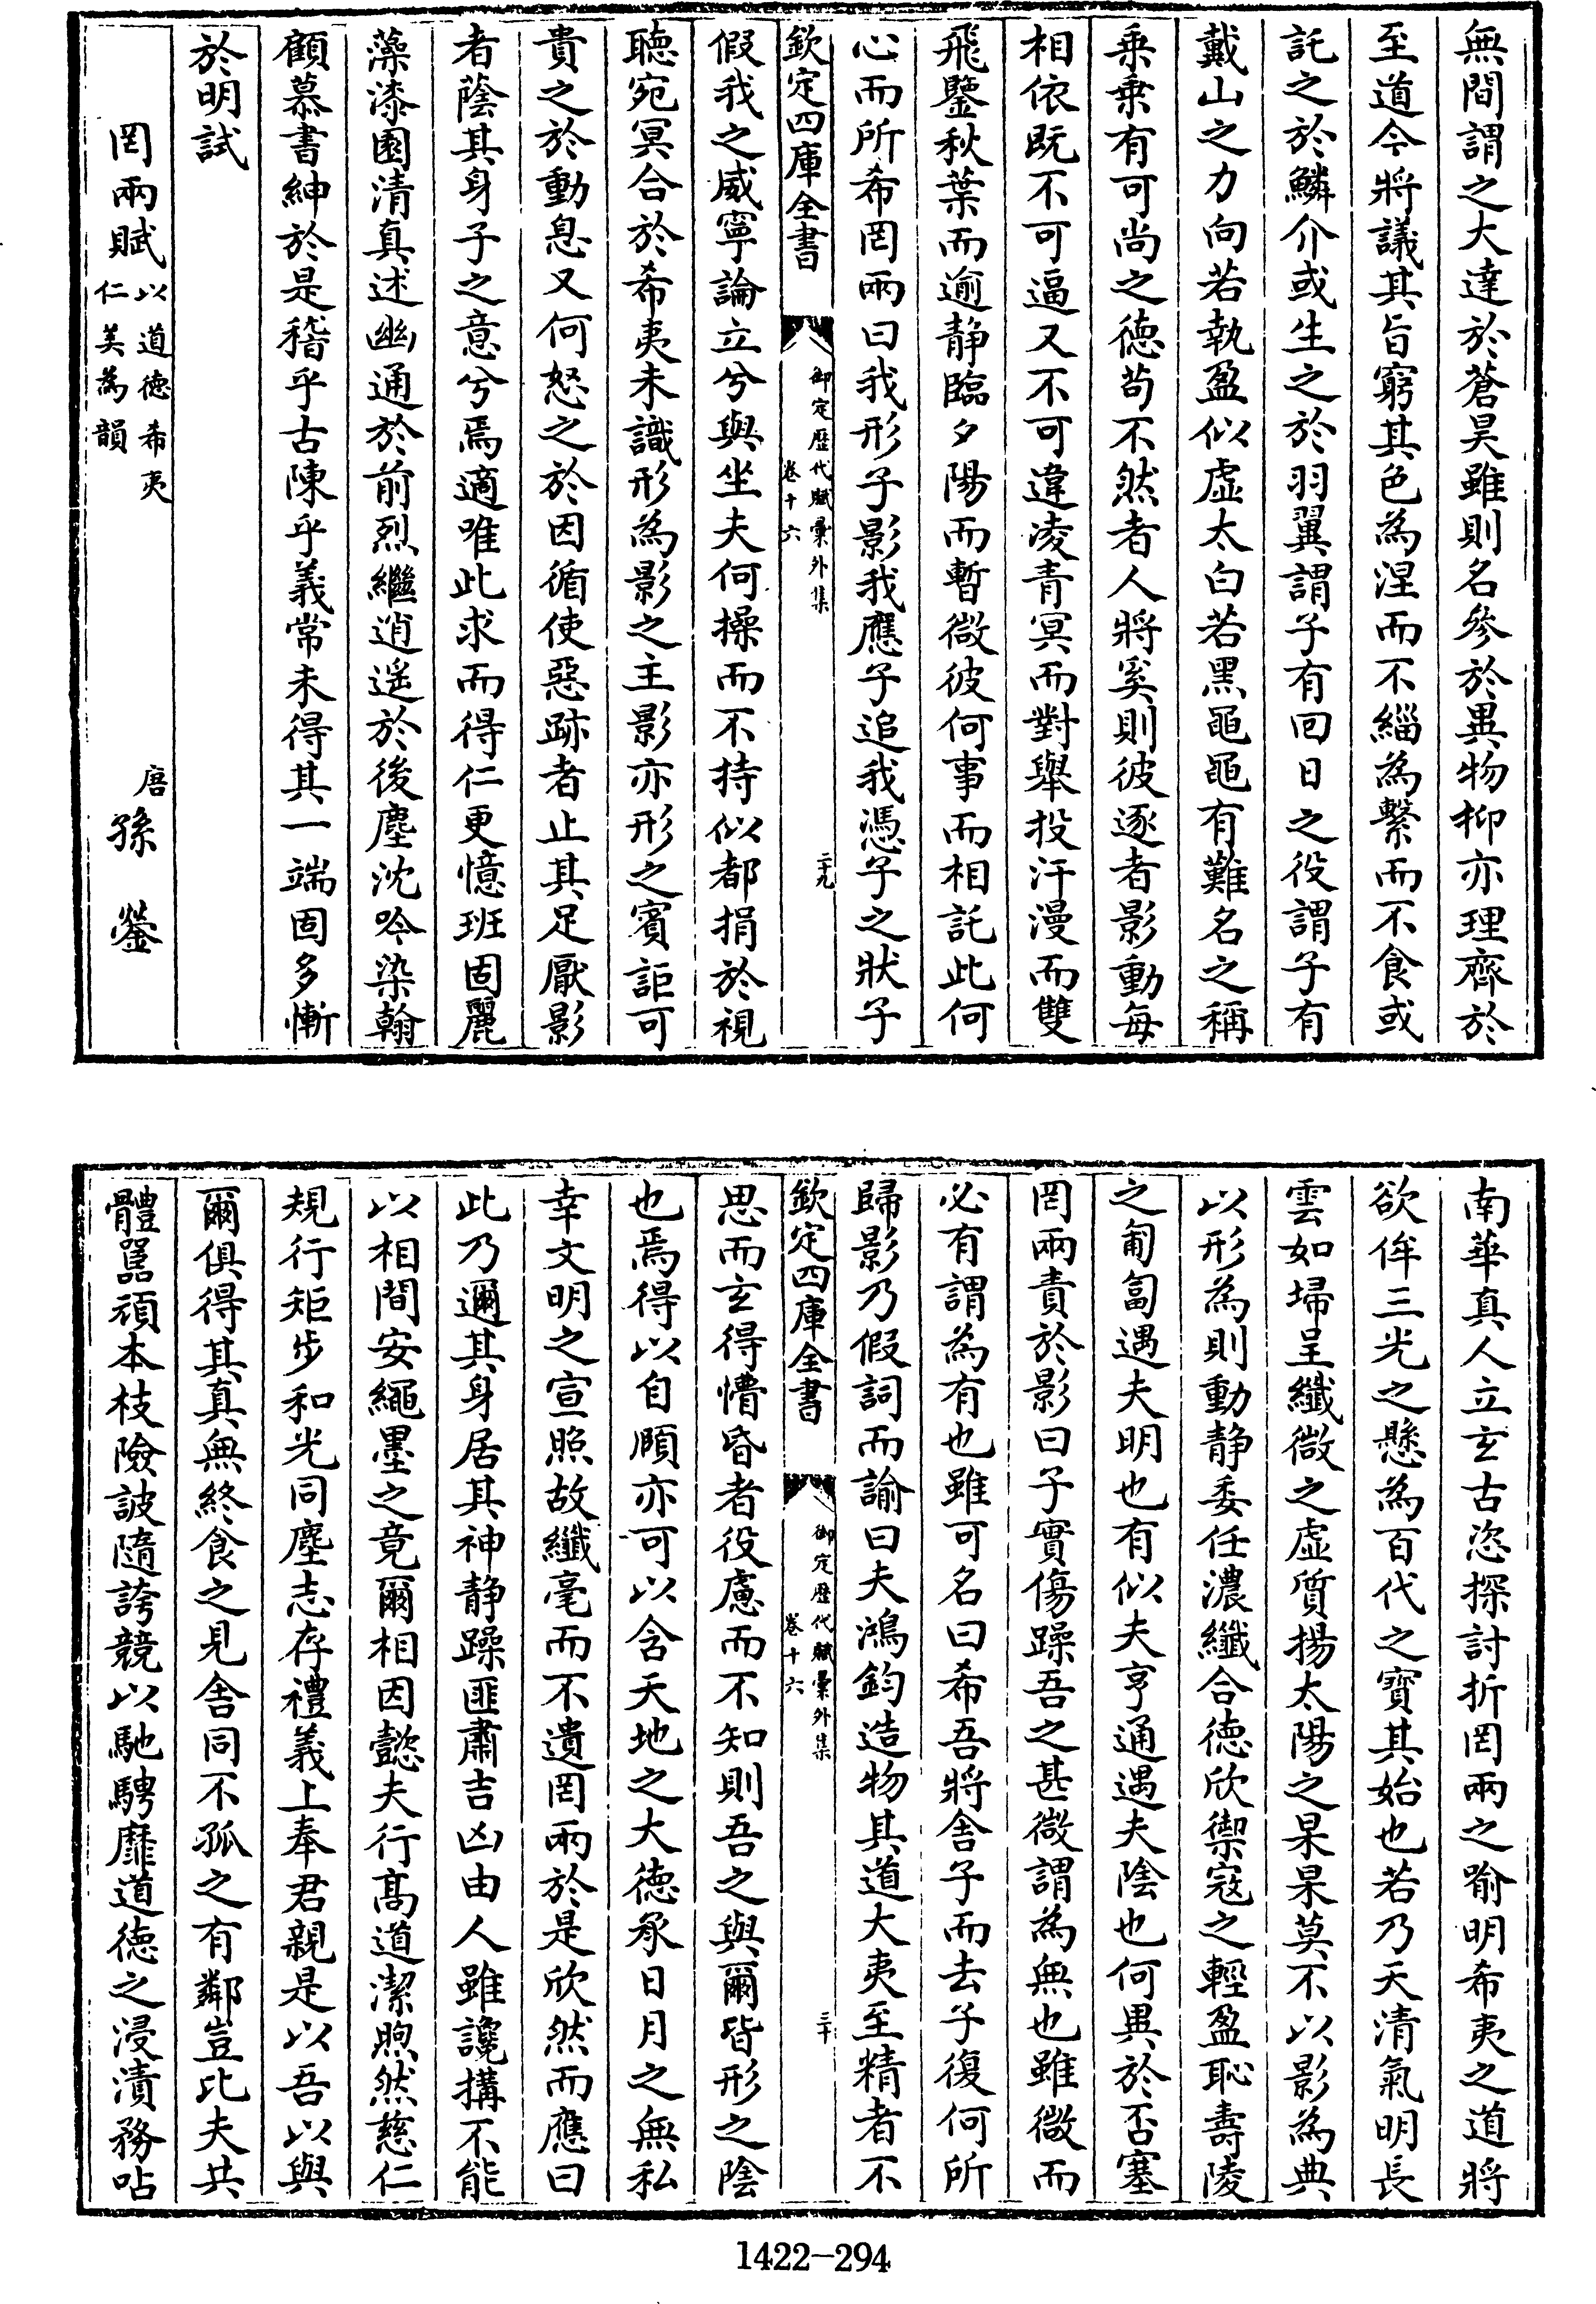 無間謂之大達於蒼昊雖則名參於異物抑亦理齊於
至道今將議其旨窮其色為涅而不緇為繫而不食或
託之於鱗介或生之於羽翼謂子有回日之役謂子有
戴山之力向若執盈似虛太白若黑黽黽有難名之稱
乗乗有可尚之德苟不然者人將奚則彼逐者影動每
相依既不可逼又不可違凌青冥而對舉投汗漫而雙
飛鑒秋葉而逾静臨夕陽而暫微彼何事而相託此何
心而所希罔兩曰我形子影我應子追我憑子之狀子
欽定四庫全書
御定歴代賦彚外集
卷十六
二十九
假我之威寧論立兮與坐夫何操而不持似都捐於視
聽宛冥合於希夷未識形為影之主影亦形之賓詎可
貴之於動息又何怒之於因循使惡跡者止其足厭影
者蔭其身子之意兮焉適唯此求而得仁更憶班固麗
藻漆園清真述幽通於前烈繼逍遥於後塵沈吟染翰
顧慕書紳於是稽乎古陳乎義常未得其一端固多慚
於明試
罔兩賦 以道德希夷仁美為韻 唐 孫鎣
南華真人立玄古恣探討折罔兩之喻明希夷之道將
欲侔三光之懸為百代之寶其始也若乃天清氣明長
雲如埽呈纖微之虛質揚太陽之杲杲莫不以影為典
以形為則動静委任濃纖合德欣禦寇之輕盈恥壽陵
之匍匐遇夫明也有似夫亨通遇夫陰也何異於否塞
罔兩責於影曰子實傷躁吾之甚微謂為無也雖微而
必有謂為有也雖可名曰希吾將舍子而去子復何所
歸影乃假詞而諭曰夫鴻鈞造物其道大夷至精者不
欽定四庫全書
御定歴代賦彚外集
卷十六
三十
思而玄得懵昏者役慮而不知則吾之與爾皆形之陰
也焉得以自頤亦可以含天地之大德承日月之無私
幸文明之宣照故纖毫而不遺罔兩於是欣然而應曰
此乃邇其身居其神静躁匪肅吉凶由人雖讒搆不能
以相間安繩墨之竟爾相因懿夫行髙道潔煦然慈仁
規行矩步和光同塵志存禮義上奉君親是以吾以與
爾俱得其真無終食之見舍同不孤之有鄰豈比夫共
體嚚頑本枝險詖隨誇競以馳騁靡道德之浸漬務呫
1422-294